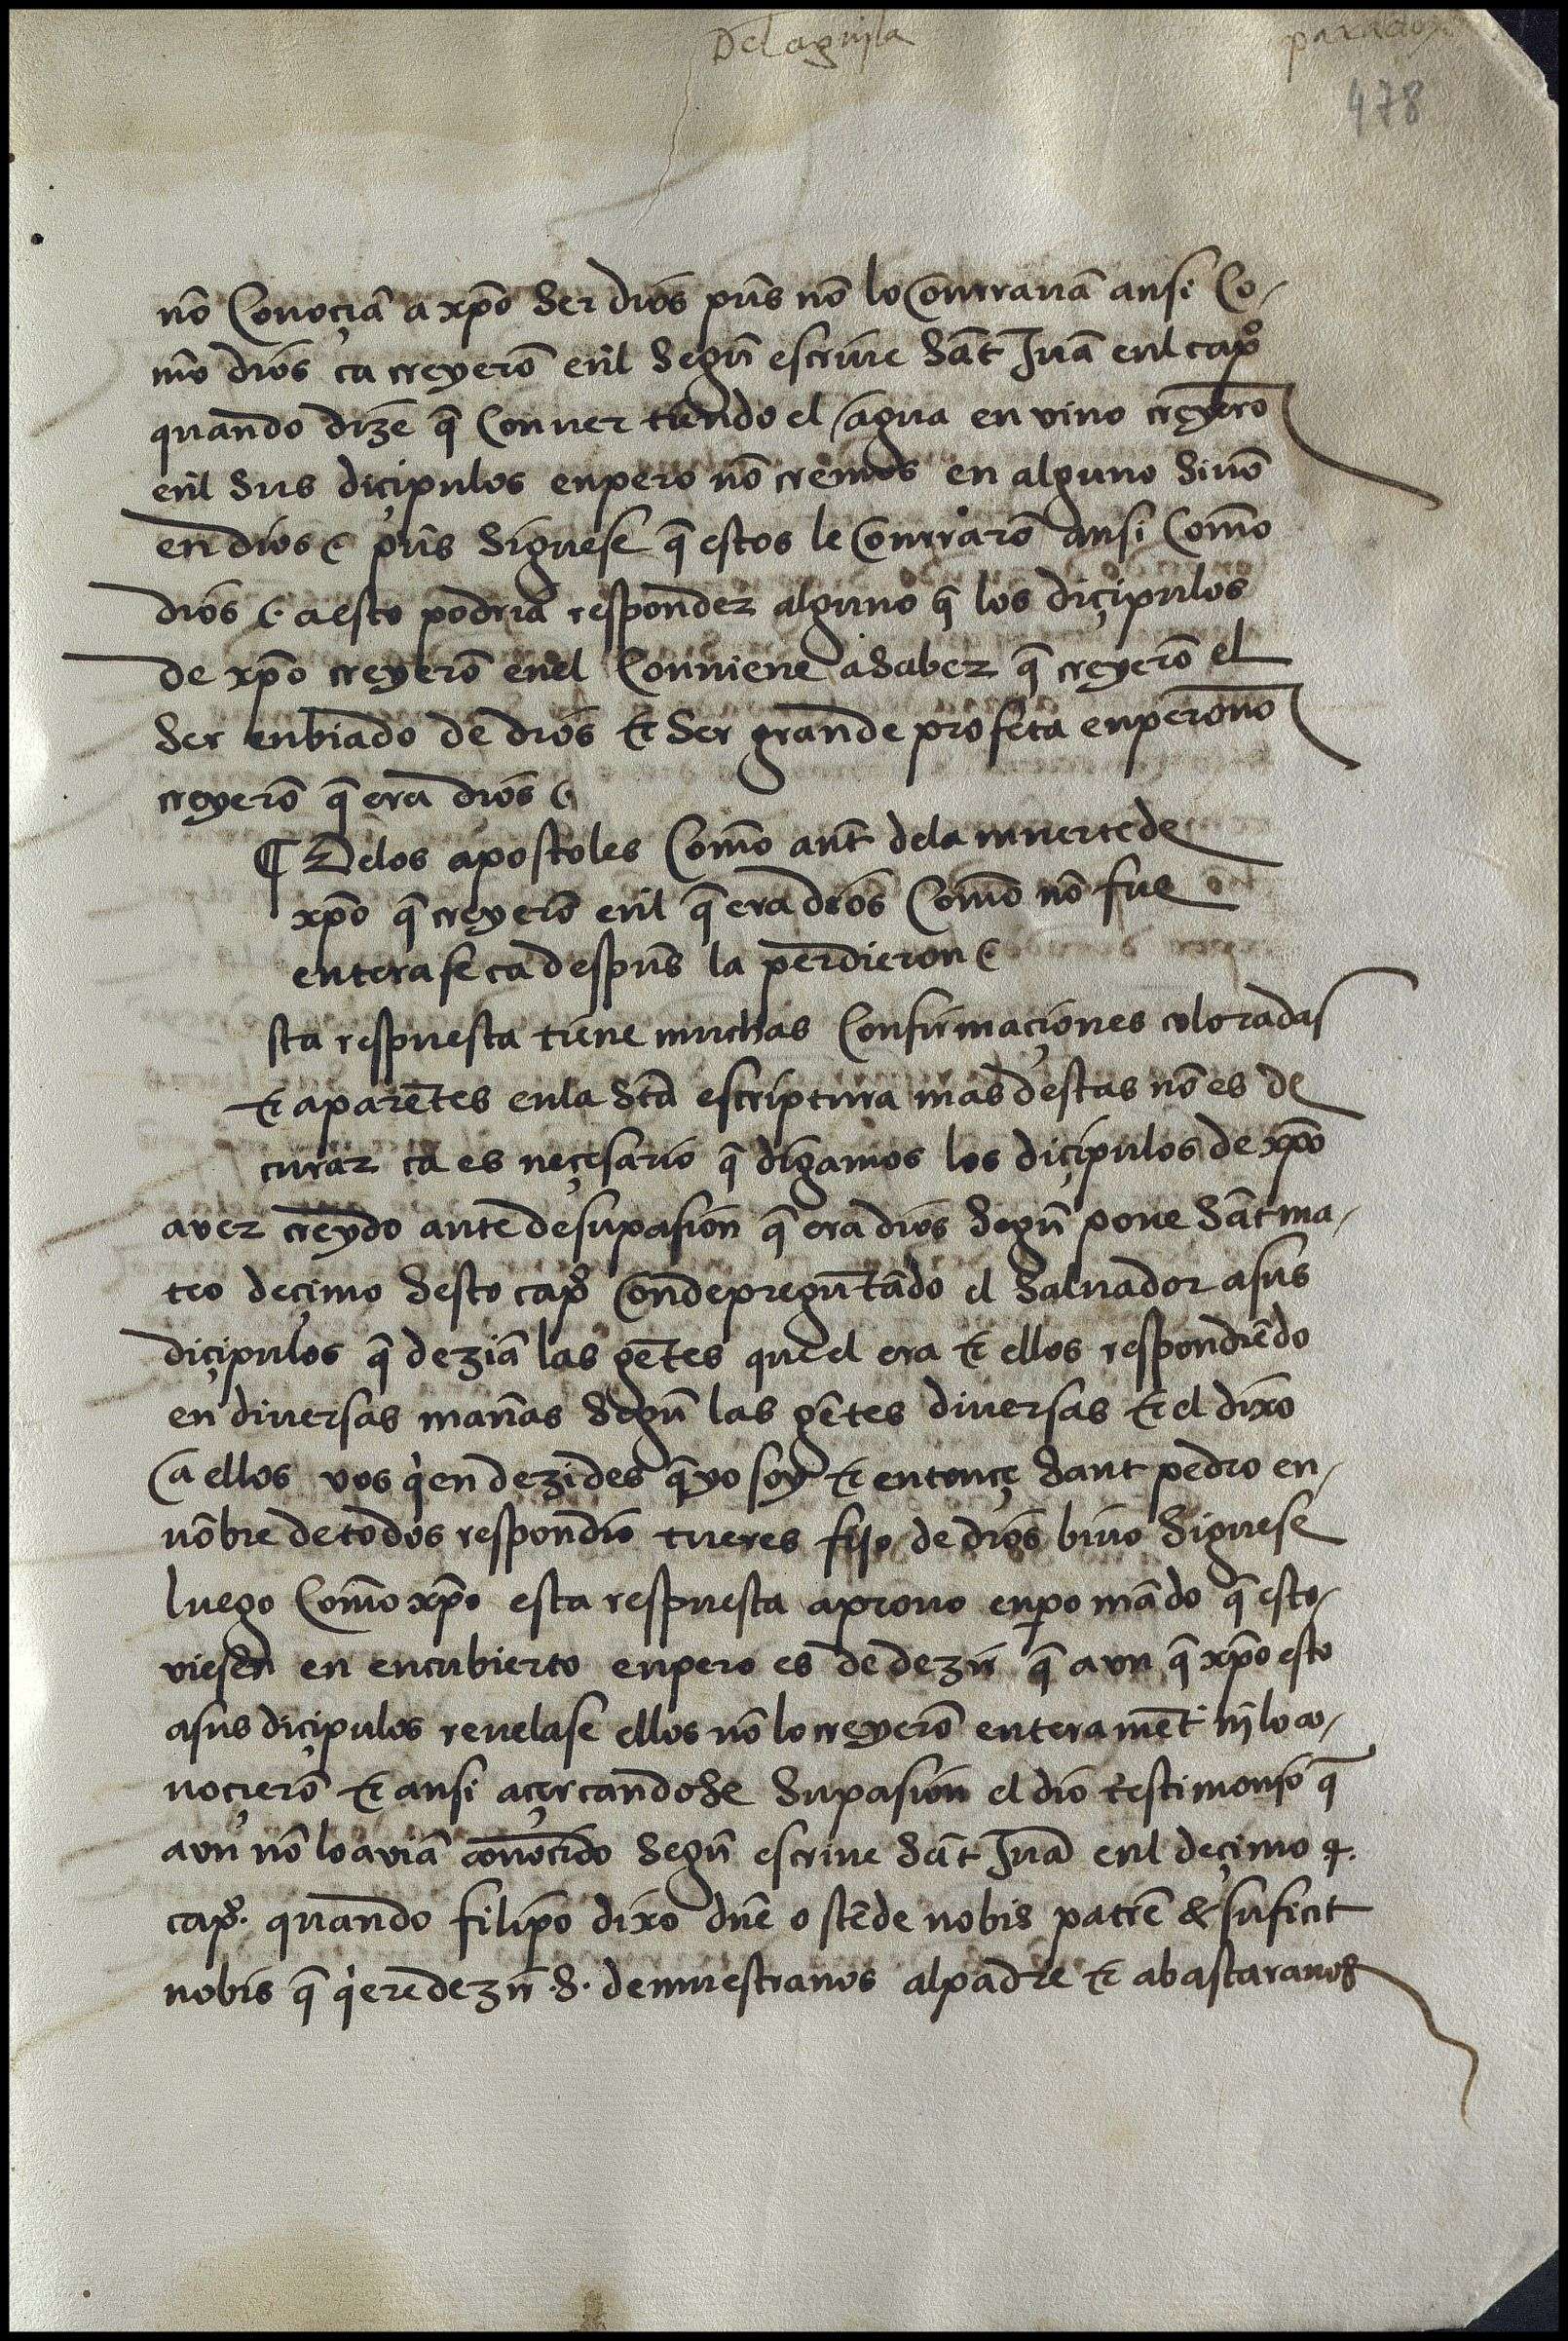 Del aguila
parado
478
nō Conoçiā a xp̄o ser dios pūs nō lo Conrravā ansi Co-
mō dios ca creyerō enl̄ segūn escrive sāt Juā enl cap̄o
quando dize q̄ Convertiendo el agua en vino creyerō
enl̄ sus diçipulos enpero nō cremos en alguno sinō
en dios pūs siguese q̄ estos le Conrrarō ansi Comō
dios a esto podria responder alguno q̄ los diçipulos
de xp̄o creyerō enel Conviene a saber q̄ creyerō el
ser enbiado de dios & ser grande profeta enpero no
creyerō q̄ era dios
¶ Delos apostoles Comō ant̄ dela muerte de
xp̄o q̄ creyerō enl̄ q̄ era dios Comō nō fue
entera fe ca despūs la perdieron
sta respuesta tiene muchas Confirmaçiones coloradas
& aparētes enla stā escriptura mas destas nō es de
curar ca es neçesario q̄ digamos los diçipulos de xp̄o
aver creydo ante de su pasion q̄ era dios segūn pone sāt ma-
teo deçimo sesto cap̄o Onde pregūntādo el salvador a sus
diçipulos q̄ deziā las gētes quel era & ellos respondiēdo
en diversas manās segūn las gētes diversas & el dixo
a ellos vos q̇en dezides q̄ yo soy & entonçe sant pedro en-
nōbre de todos respondio tu eres fijo de dios bivo siguese
luego Comō xp̄o esta respuesta aprovo enp̱o mādo q̄ esto-
viesen en encubierto enpero es de dezir q̄ aun q̄ xp̄o esto
a sus diçipulos revelase ellos nō lo creyerō enteramēt nj lo co-
noçierō & ansi açercandose su pasion el dio testimonio q̄
aun nō lo aviā conoçido segūn escrive sāt Juā enl deçimo 4.
cap̄o. quando filipo dixo dnē ostēde nobis patrē & suficit
nobis q̄ q̇ere dezir .s. demuestranos al padre & abastaranos